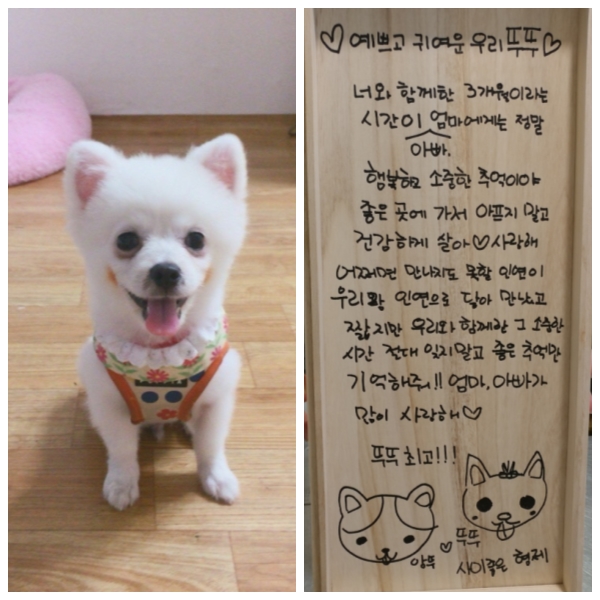 ♡예쁘고 귀여운 우리뚜뚜♡
너와 함께한 3개월이라는
시간이 엄마에게는 정말
아빠.
행복하고 소중한 추억이야
좋은 곳에 가서 아프지 말고
건강하게 살아♡사랑해
어쩌면 만나지도 못할 인연이
우리랑 인연으로 닿아 만났고
짧지만 우리와 함께한 그 소중한
시간 절대 잊지말고 좋은 추억만
기억해줘!! 엄마, 아빠가
많이 사랑해♡
뚜뚜 최고!!!
앙뚜 ♡ 뚜뚜
사이좋은 형제